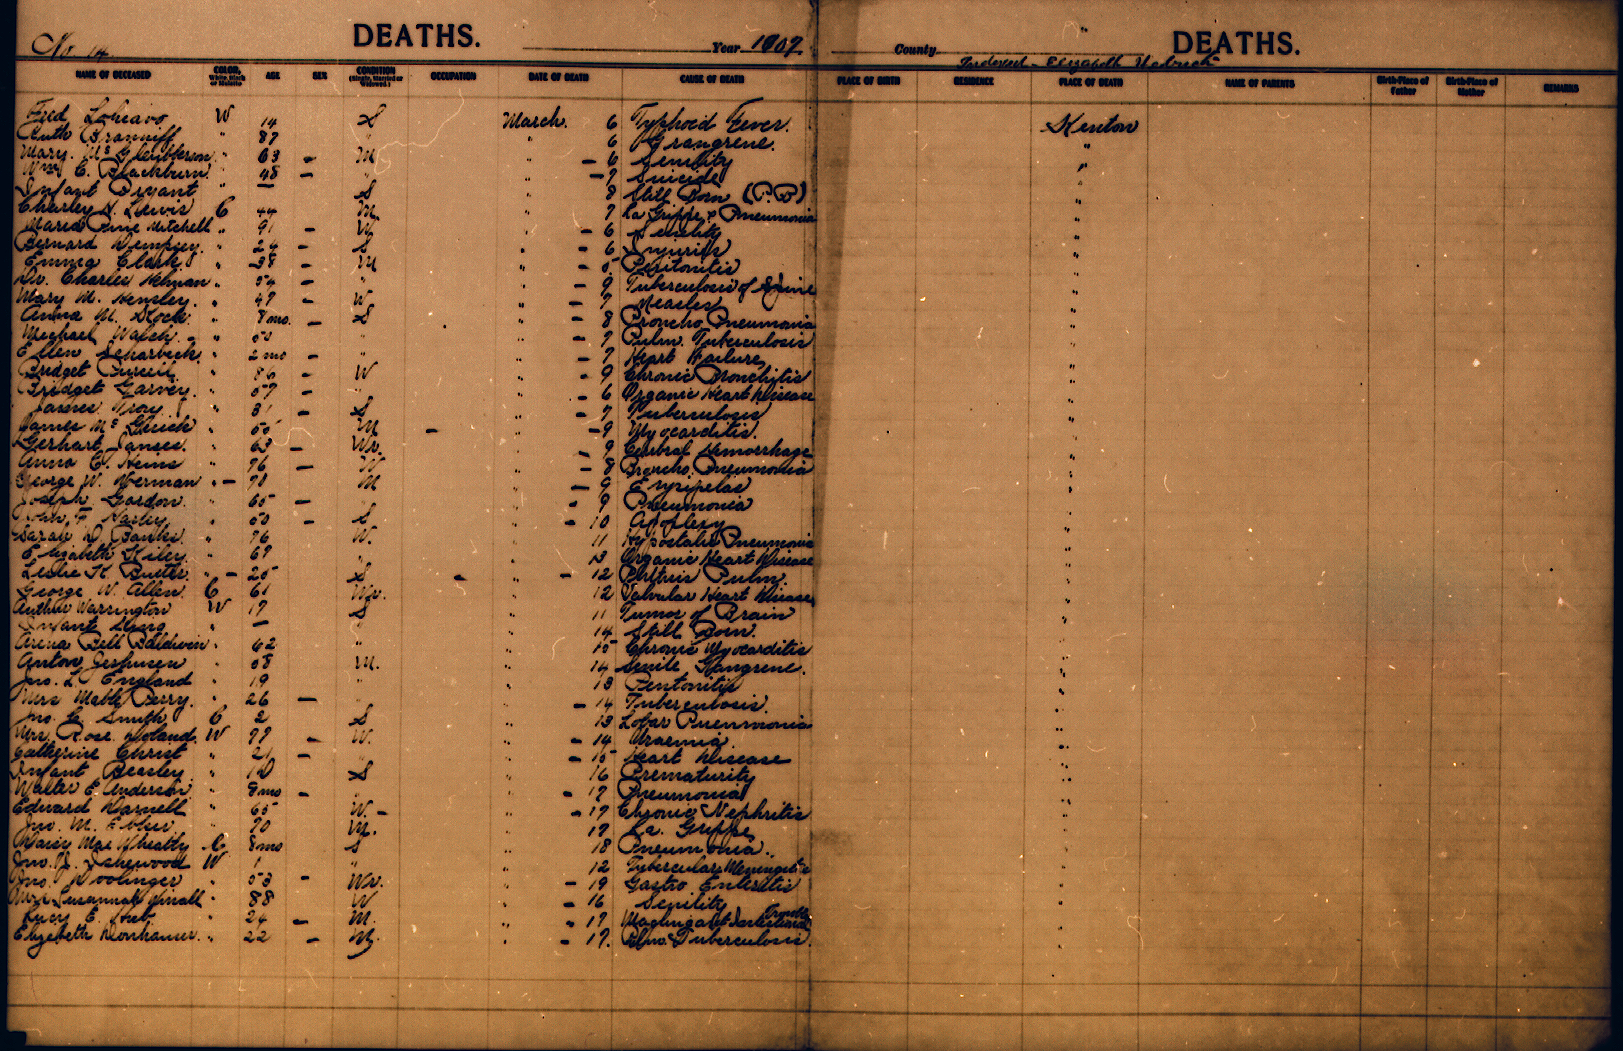 No. 14 DEATHS. Year 1907. County DEATHS.
Indexed - Elizabeth
NAME OF DECEASED COLOR, White, Black or Mulatto AGE SEX CONDITION (Single, Married or Widowed.) OCCUPATION DATE OF DEATH CAUSE OF DEATH PLACE OF BIRTH RESIDENCE PLACE OF DEATH NAME OF PARENTS Birth-Place of Father Birth-Place of Mother REMARKS
Fred W 14 S March. 6 Typhoid Fever. Kenton
Ruth Branniff " 87 " " 6 Grangrene. "
Mary 63 - M " - 6 Senility "
Wm. E. Blackburn. " 48 - " " - 7 Suicide "
Infant Bryant " — S " 8 Still Born (P.B) "
Charley H. Lewis C 44 M. " 7 La Grippe & Pneumonia "
Maria Mitchell " 91 - W " - 6 Senility "
Bernard Dempsey. " 24 - S " - 6 Injuries "
Emma Clark. " 38 - M " - 5 Peritonitis "
Dr. Charles " 54 - " " - 9 Tuberculosis of Spine "
Mary M. Hensley. " 47 - W " - 7 Measles "
Anna M. Stock. " 8 mo. - S " 8 Broncho Pneumonia "
Michael Walch. " 50 " " - 7 Pulm. Tuberculosis "
Ellen " 2 mo - " " - 7 Heart Failure "
Bridget " 86 - W " - 9 Chronic Bronchitis "
Bridget Garvey. " 57 - " " - 6 Organic Heart Disease "
James Troy. " 31 - S " - 7 Tuberculosis "
James " 55 M - " - 9 Myocarditis. "
Gerhart Janses. " 63 - Wr. " - 9 Cerebral Hemorrhage "
Anna E. Heins " 76 - W " - 8 Broncho. Pneumonia "
George W. " - 70 M " - 9 Erysipelas "
Joseph Gordon. " 65 - " " - 9 Pneumonia "
John F. Harley " 50 - S " - 10 Apoplexy "
Sarah D. Banks. " 76 W. " 11 Hypostatic Pneumonia "
Elizabeth Kiley. " 69 " " 13 Organic Heart Disease "
Leslie K. Butler. " - 25 S - " - 12 Phthisis Pulm. "
George W. Allen. C 61 Wr. " 12 Valvular Heart Disease "
Arthur Warrington W 17 S " 11 Tumor of Brain "
Infant " — " " 14 Still Born. "
Arena Bell Baldwin " 62 " " 15 Chronic Myocarditis "
Anton " 58 M. " 14 Senile Gangrene. "
Jno. L. England " 19 " " 13 Peritonitis "
Mrs Mable Perry. " 26 - " " - 14 Tuberculosis. "
Jno. C. Smith C 2 S " 13 Lobar Pneumonia "
Mrs. Rose Noland. W 77 - W. " - 14 Uraemia. "
Catherine Christ " 21 - " " - 15 Heart Disease "
Infant Beasley. " S " 16 Prematurity "
Walter E. Anderson " 9 mo - " " - 17 Pneumonia "
Edward Darnell " 65 W. - " - 17 Chronic Nephritis "
Jno. M. " 70 M. " 17 La. Grippe "
Daisy Mae Wheatly C. 8 mo S " 18 Pneumonia. "
Jno. J. Isherwood W 1 " " 12 Tubercular Meningitis "
Jno. " 53 - Wr. " - 19 Gastro Enteritis "
Mrs Susannah " 88 W " - 16 Senility "
Lucy E. " 24 - M. " - 17 Intestinal Trouble "
Elizabeth " 22 - M. " - 17. Tuberculosis. "